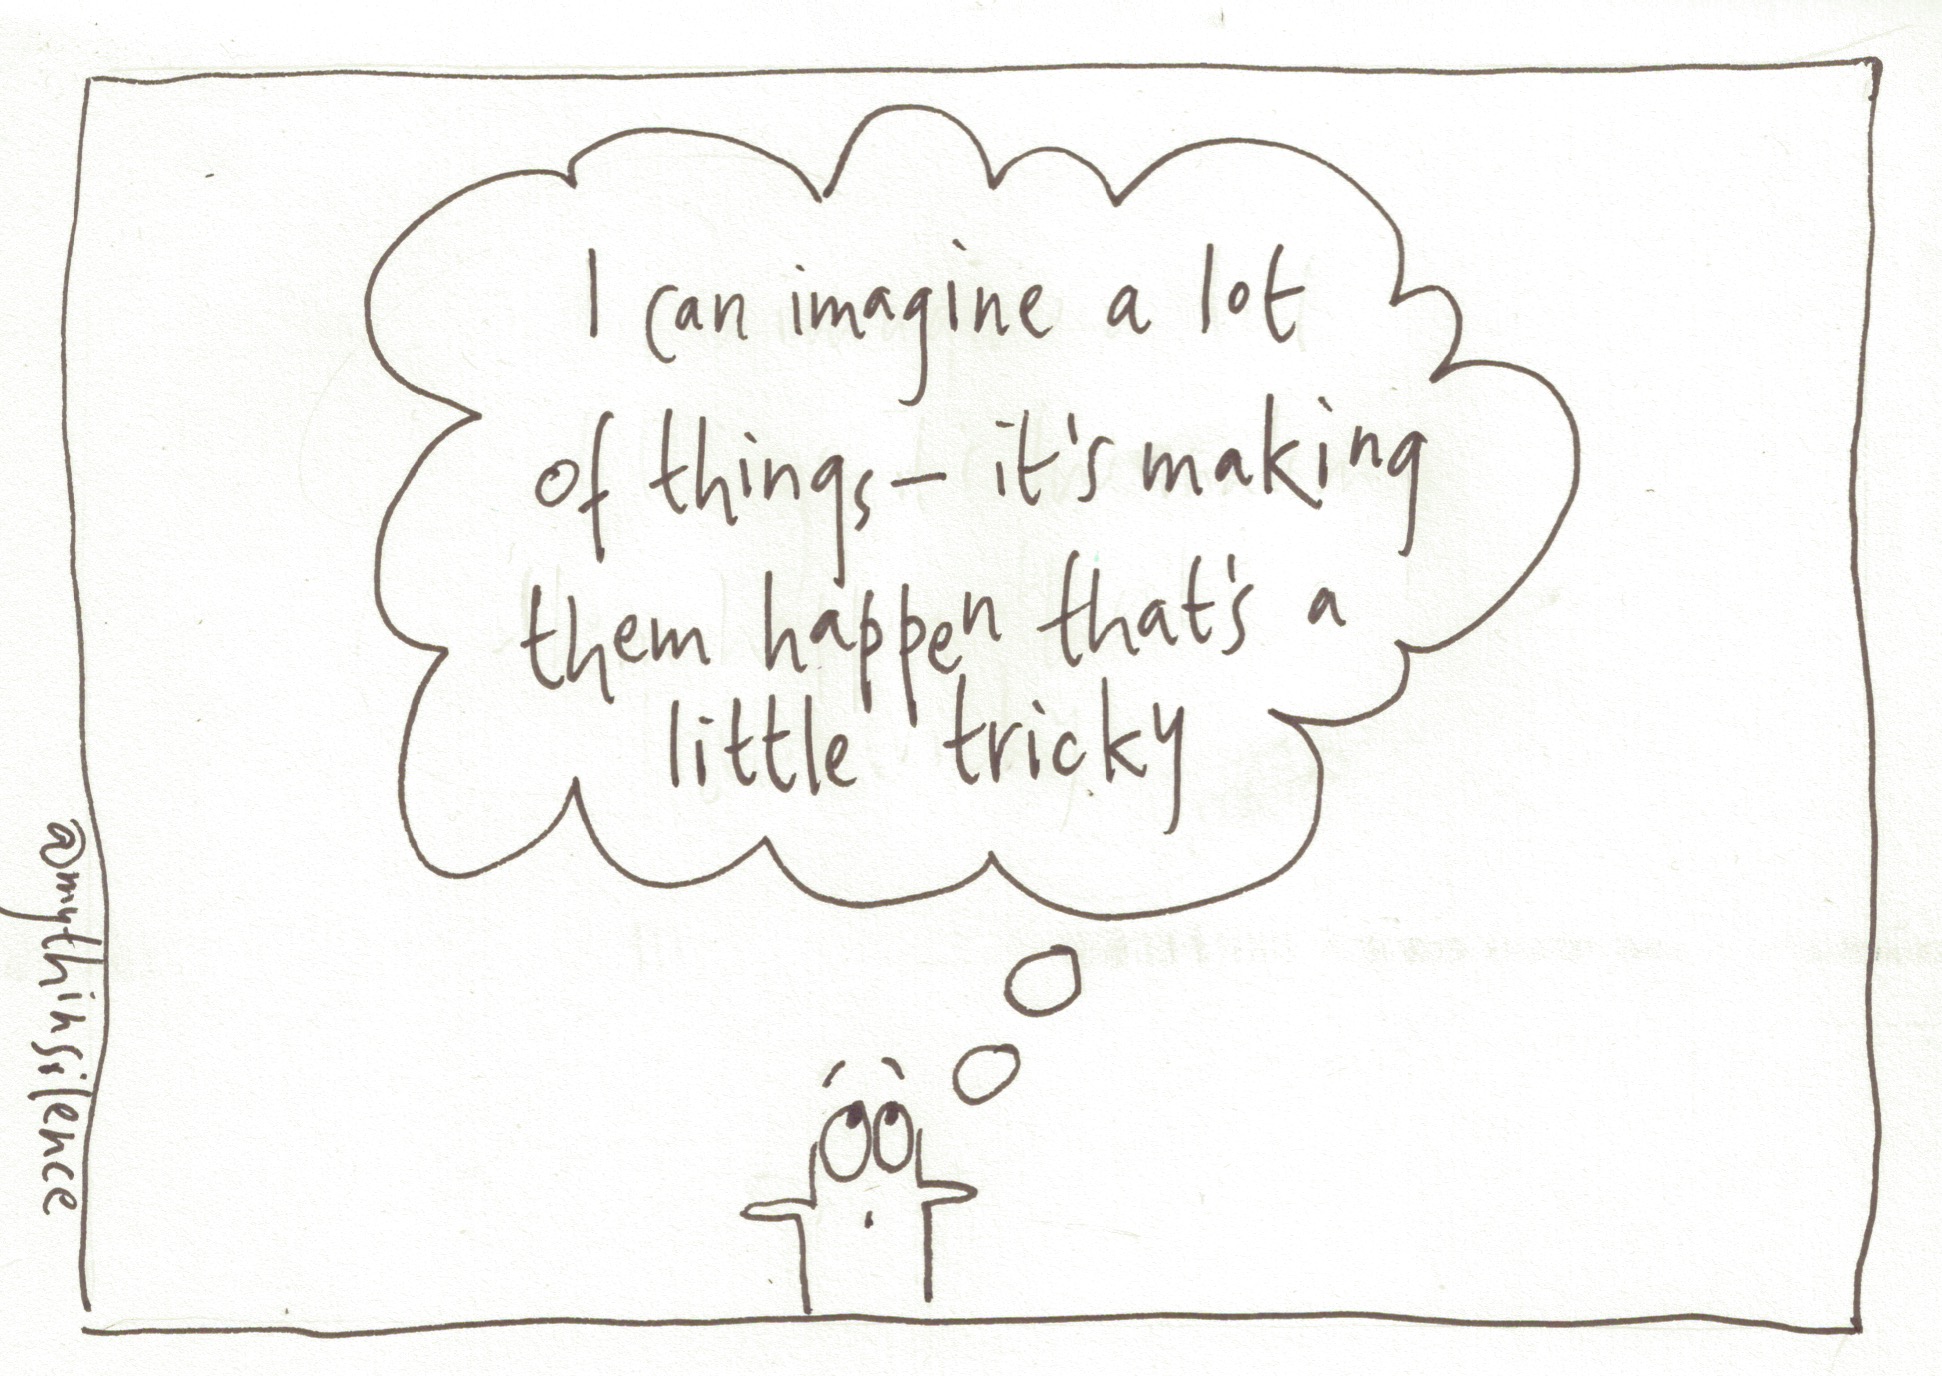 I can imagine a lot
of things – it's making
them happen that's a
little tricky
@mythinsilence